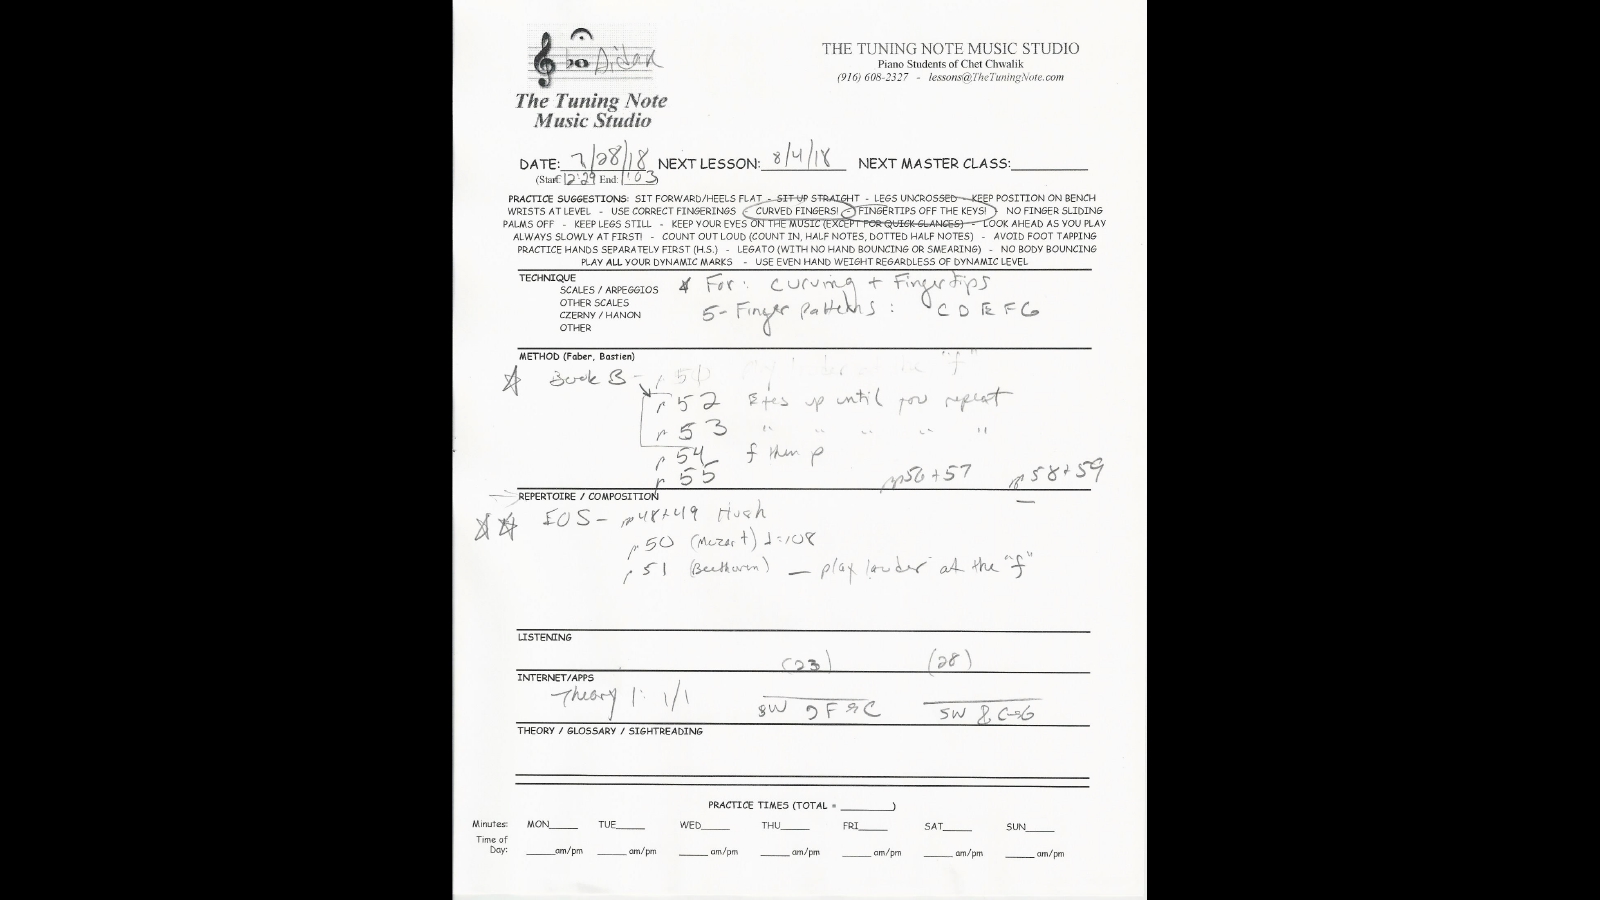 Aidan
The Tuning Note
Music Studio
THE TUNING NOTE MUSIC STUDIO
Piano Students of Chet Chwalik
(916) 608-2327 - lessons@TheTuningNote.com
DATE: 7/28/18 NEXT LESSON: 8/4/18 NEXT MASTER CLASS:
(Start: 12:29 End: 1:03)
PRACTICE SUGGESTIONS: SIT FORWARD/HEELS FLAT - SIT UP STRAIGHT - LEGS UNCROSSED - KEEP POSITION ON BENCH
WRISTS AT LEVEL - USE CORRECT FINGERINGS - CURVED FINGERS! - FINGERTIPS OFF THE KEYS! - NO FINGER SLIDING
PALMS OFF - KEEP LEGS STILL - KEEP YOUR EYES ON THE MUSIC (EXCEPT FOR QUICK GLANCES) - LOOK AHEAD AS YOU PLAY
ALWAYS SLOWLY AT FIRST! - COUNT OUT LOUD (COUNT IN, HALF NOTES, DOTTED HALF NOTES) - AVOID FOOT TAPPING
PRACTICE HANDS SEPARATELY FIRST (H.S.) - LEGATO (WITH NO HAND BOUNCING OR SMEARING) - NO BODY BOUNCING
PLAY ALL YOUR DYNAMIC MARKS - USE EVEN HAND WEIGHT REGARDLESS OF DYNAMIC LEVEL
TECHNIQUE
SCALES / ARPEGGIOS For: Curving + Fingertips
OTHER SCALES
CZERNY / HANON 5-Finger patterns: C D E F G
OTHER
METHOD (Faber, Bastien)
Book B - p 51 play louder at the "f"
p 52 Eyes up until you repeat
p 53 " " " " "
p 54 f then p
p 55 pp 56+57 pp 58+59
REPERTOIRE / COMPOSITION
EOS - pp 48+49 Hush
p 50 (Mozart) ♩=108
p 51 (Beethoven) — play louder at the "f"
LISTENING
(23) (28)
INTERNET/APPS
Theory 1: 1/1
THEORY / GLOSSARY / SIGHTREADING
PRACTICE TIMES (TOTAL = ________)
Minutes: MON_____ TUE_____ WED_____ THU_____ FRI_____ SAT_____ SUN_____
Time of
Day: _____am/pm _____ am/pm _____ am/pm _____ am/pm _____ am/pm _____ am/pm _____ am/pm